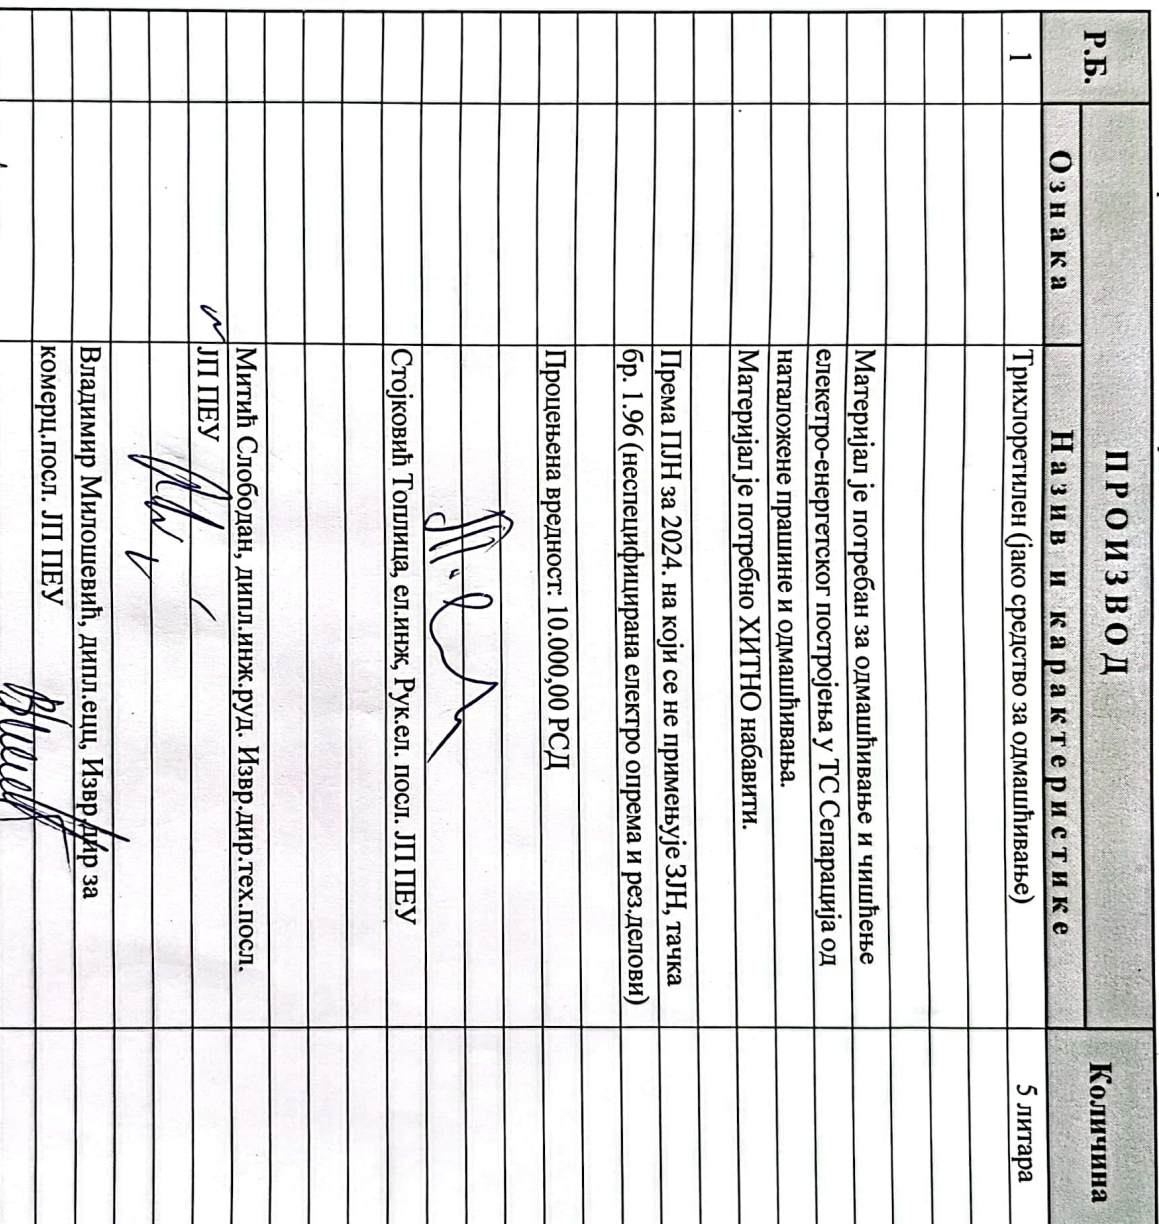 Р.Б.
ПРОИЗВОД
Количина
Ознака
Назив и карактеристике
1
Трихлоретилен (јако средство за одмашћивање)
5 литара
Материјал је потребан за одмашћивање и чишћење
елекетро-енергетског постројења у ТС Сепарација од
наталожене прашине и одмашћивања.
Материјал је потребно ХИТНО набавити.
Према ПЈН за 2024. на који се не примењује ЗЈН, тачка
бр. 1.96 (неспецифицирана електро опрема и рез.делови)
Процењена вредност: 10.000,00 РСД
Стојковић Топлица, ел.инж, Рук.ел. посл. ЈП ПЕУ
Митић Слободан, дипл.инж.руд. Извр.дир.тех.посл.
ЈП ПЕУ
Владимир Милошевић, дипл.ецц, Извр.дир за
комерц.посл. ЈП ПЕУ